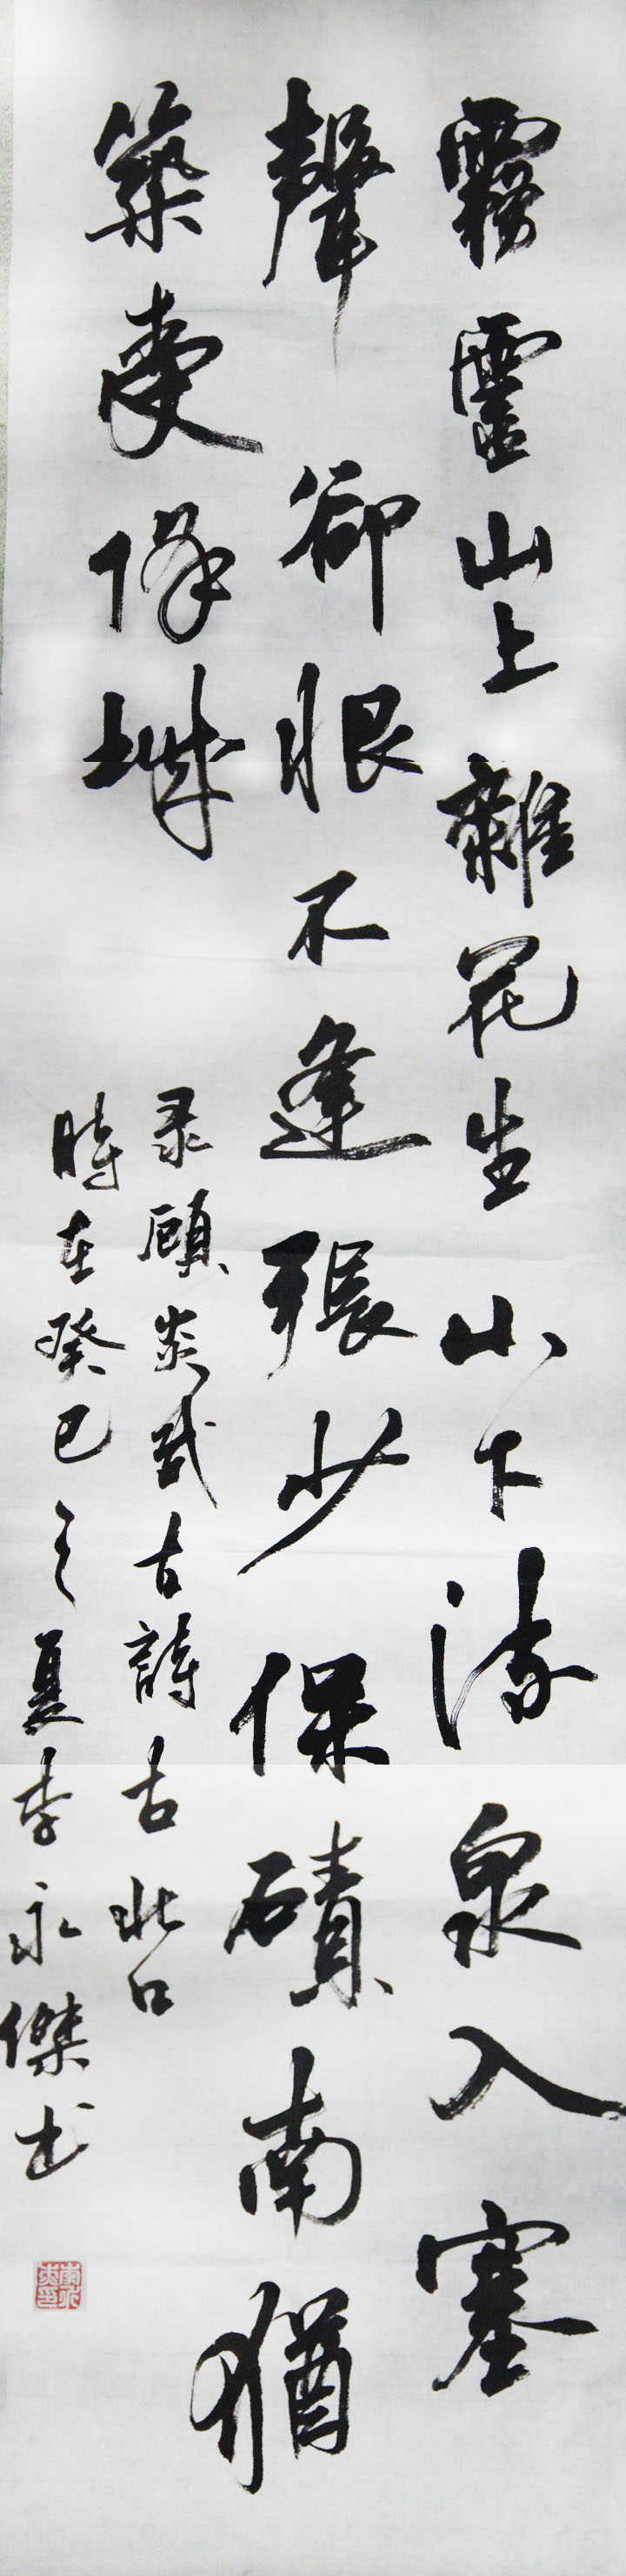 霧靈山上雜花生山下流泉入塞
聲卻恨不逢張少保磧南猶
築受降城
录顧炎武古詩古北口
時在癸巳之夏李永傑书